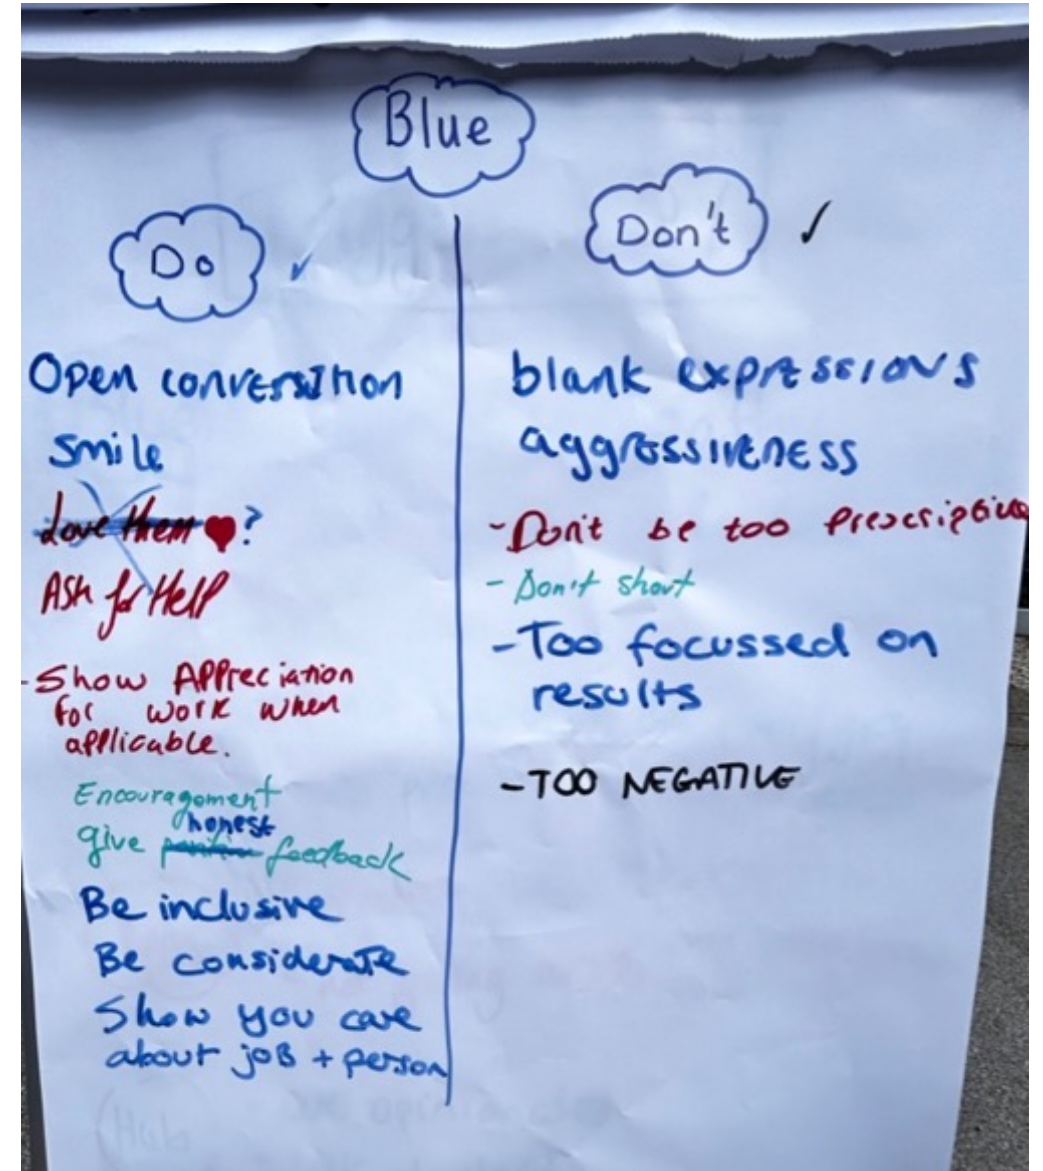 Blue
Do ✓
Open conversation
Smile
Love them ♥?
Ask for Help
-Show Appreciation
for work when
applicable.
Encouragement
honest
give feedback
Be inclusive
Be considerate
Show you care
about job + person
Don't ✓
blank expressions
aggressiveness
-Don't be too Prescriptive
-Don't shout
-Too focussed on
results
-TOO NEGATIVE